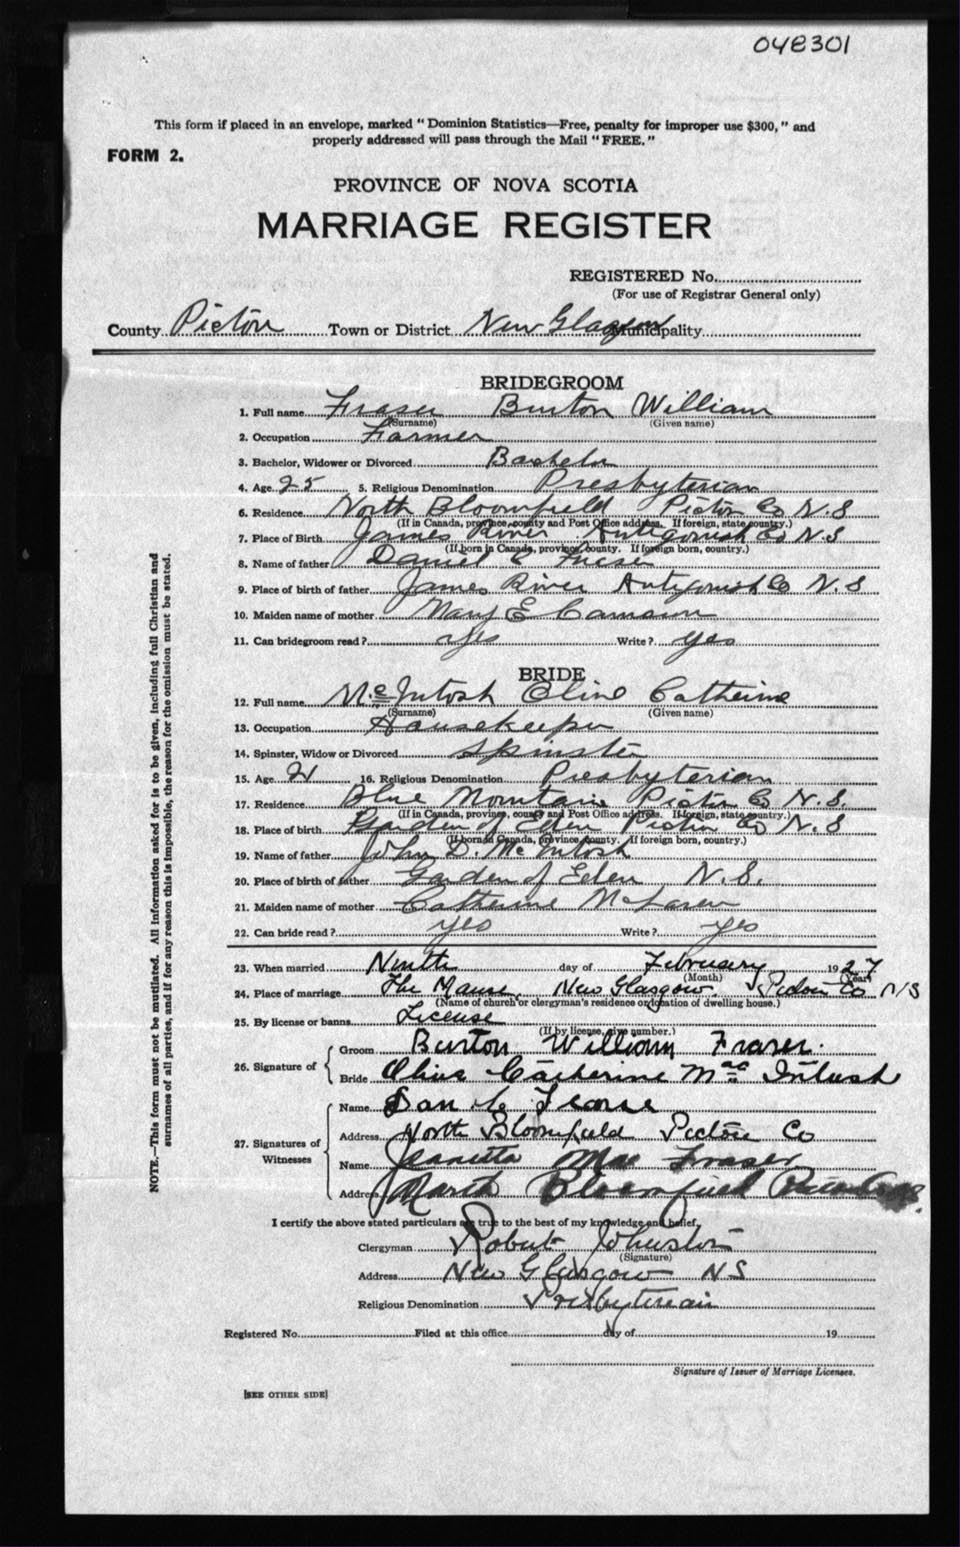 048301
This form if placed in an envelope, marked "Dominion Statistics—Free, penalty for improper use $300," and
properly addressed will pass through the Mail "FREE."
FORM 2.
PROVINCE OF NOVA SCOTIA
MARRIAGE REGISTER
REGISTERED No.
(For use of Registrar General only)
County Pictou Town or District New Glasgow Municipality
BRIDEGROOM
1. Full name Fraser Burton William
(Surname) (Given name)
2. Occupation Farmer
3. Bachelor, Widower or Divorced Bachelor
4. Age 25 5. Religious Denomination Presbyterian
6. Residence North Bloomfield Pictou Co N.S
(If in Canada, province, county and Post Office address. If foreign, state country.)
7. Place of Birth James River Antigonish Co N.S
(If born in Canada, province, county. If foreign born, country.)
8. Name of father Daniel C Fraser
9. Place of birth of father James River Antigonish Co N.S
10. Maiden name of mother Mary E Cameron
11. Can bridegroom read? yes Write? yes
BRIDE
12. Full name McIntosh Olive Catherine
(Surname) (Given name)
13. Occupation Housekeeper
14. Spinster, Widow or Divorced Spinster
15. Age 21 16. Religious Denomination Presbyterian
17. Residence Blue Mountain Pictou Co N.S.
(If in Canada, province, county and Post Office address. If foreign, state country.)
18. Place of birth Garden of Eden Pictou Co N.S
(If born in Canada, province, county. If foreign born, country.)
19. Name of father John D. McIntosh
20. Place of birth of father Garden of Eden N.S.
21. Maiden name of mother Catherine McLaren
22. Can bride read? yes Write? yes
23. When married Ninth day of February 1927
(Month) (Year)
24. Place of marriage The Manse, New Glasgow. Pictou Co N/S
(Name of church or clergyman's residence or location of dwelling house.)
25. By license or banns License
(If by license, give number.)
26. Signature of
Groom Burton William Fraser.
Bride Olive Catherine Mac Intosh
27. Signatures of Witnesses
Name Dan C Fraser
Address North Bloomfield Pictou Co
Name Jeanetta Mae Fraser
Address North Bloomfield Pictou Co
I certify the above stated particulars are true to the best of my knowledge and belief,
Clergyman Robert Johnston
(Signature)
Address New Glasgow NS
Religious Denomination Presbyterian
Registered No. Filed at this office day of 19
Signature of Issuer of Marriage Licenses.
[SEE OTHER SIDE]
NOTE.—This form must not be mutilated. All information asked for is to be given, including full Christian and
surnames of all parties, and if for any reason this is impossible, the reason for the omission must be stated.